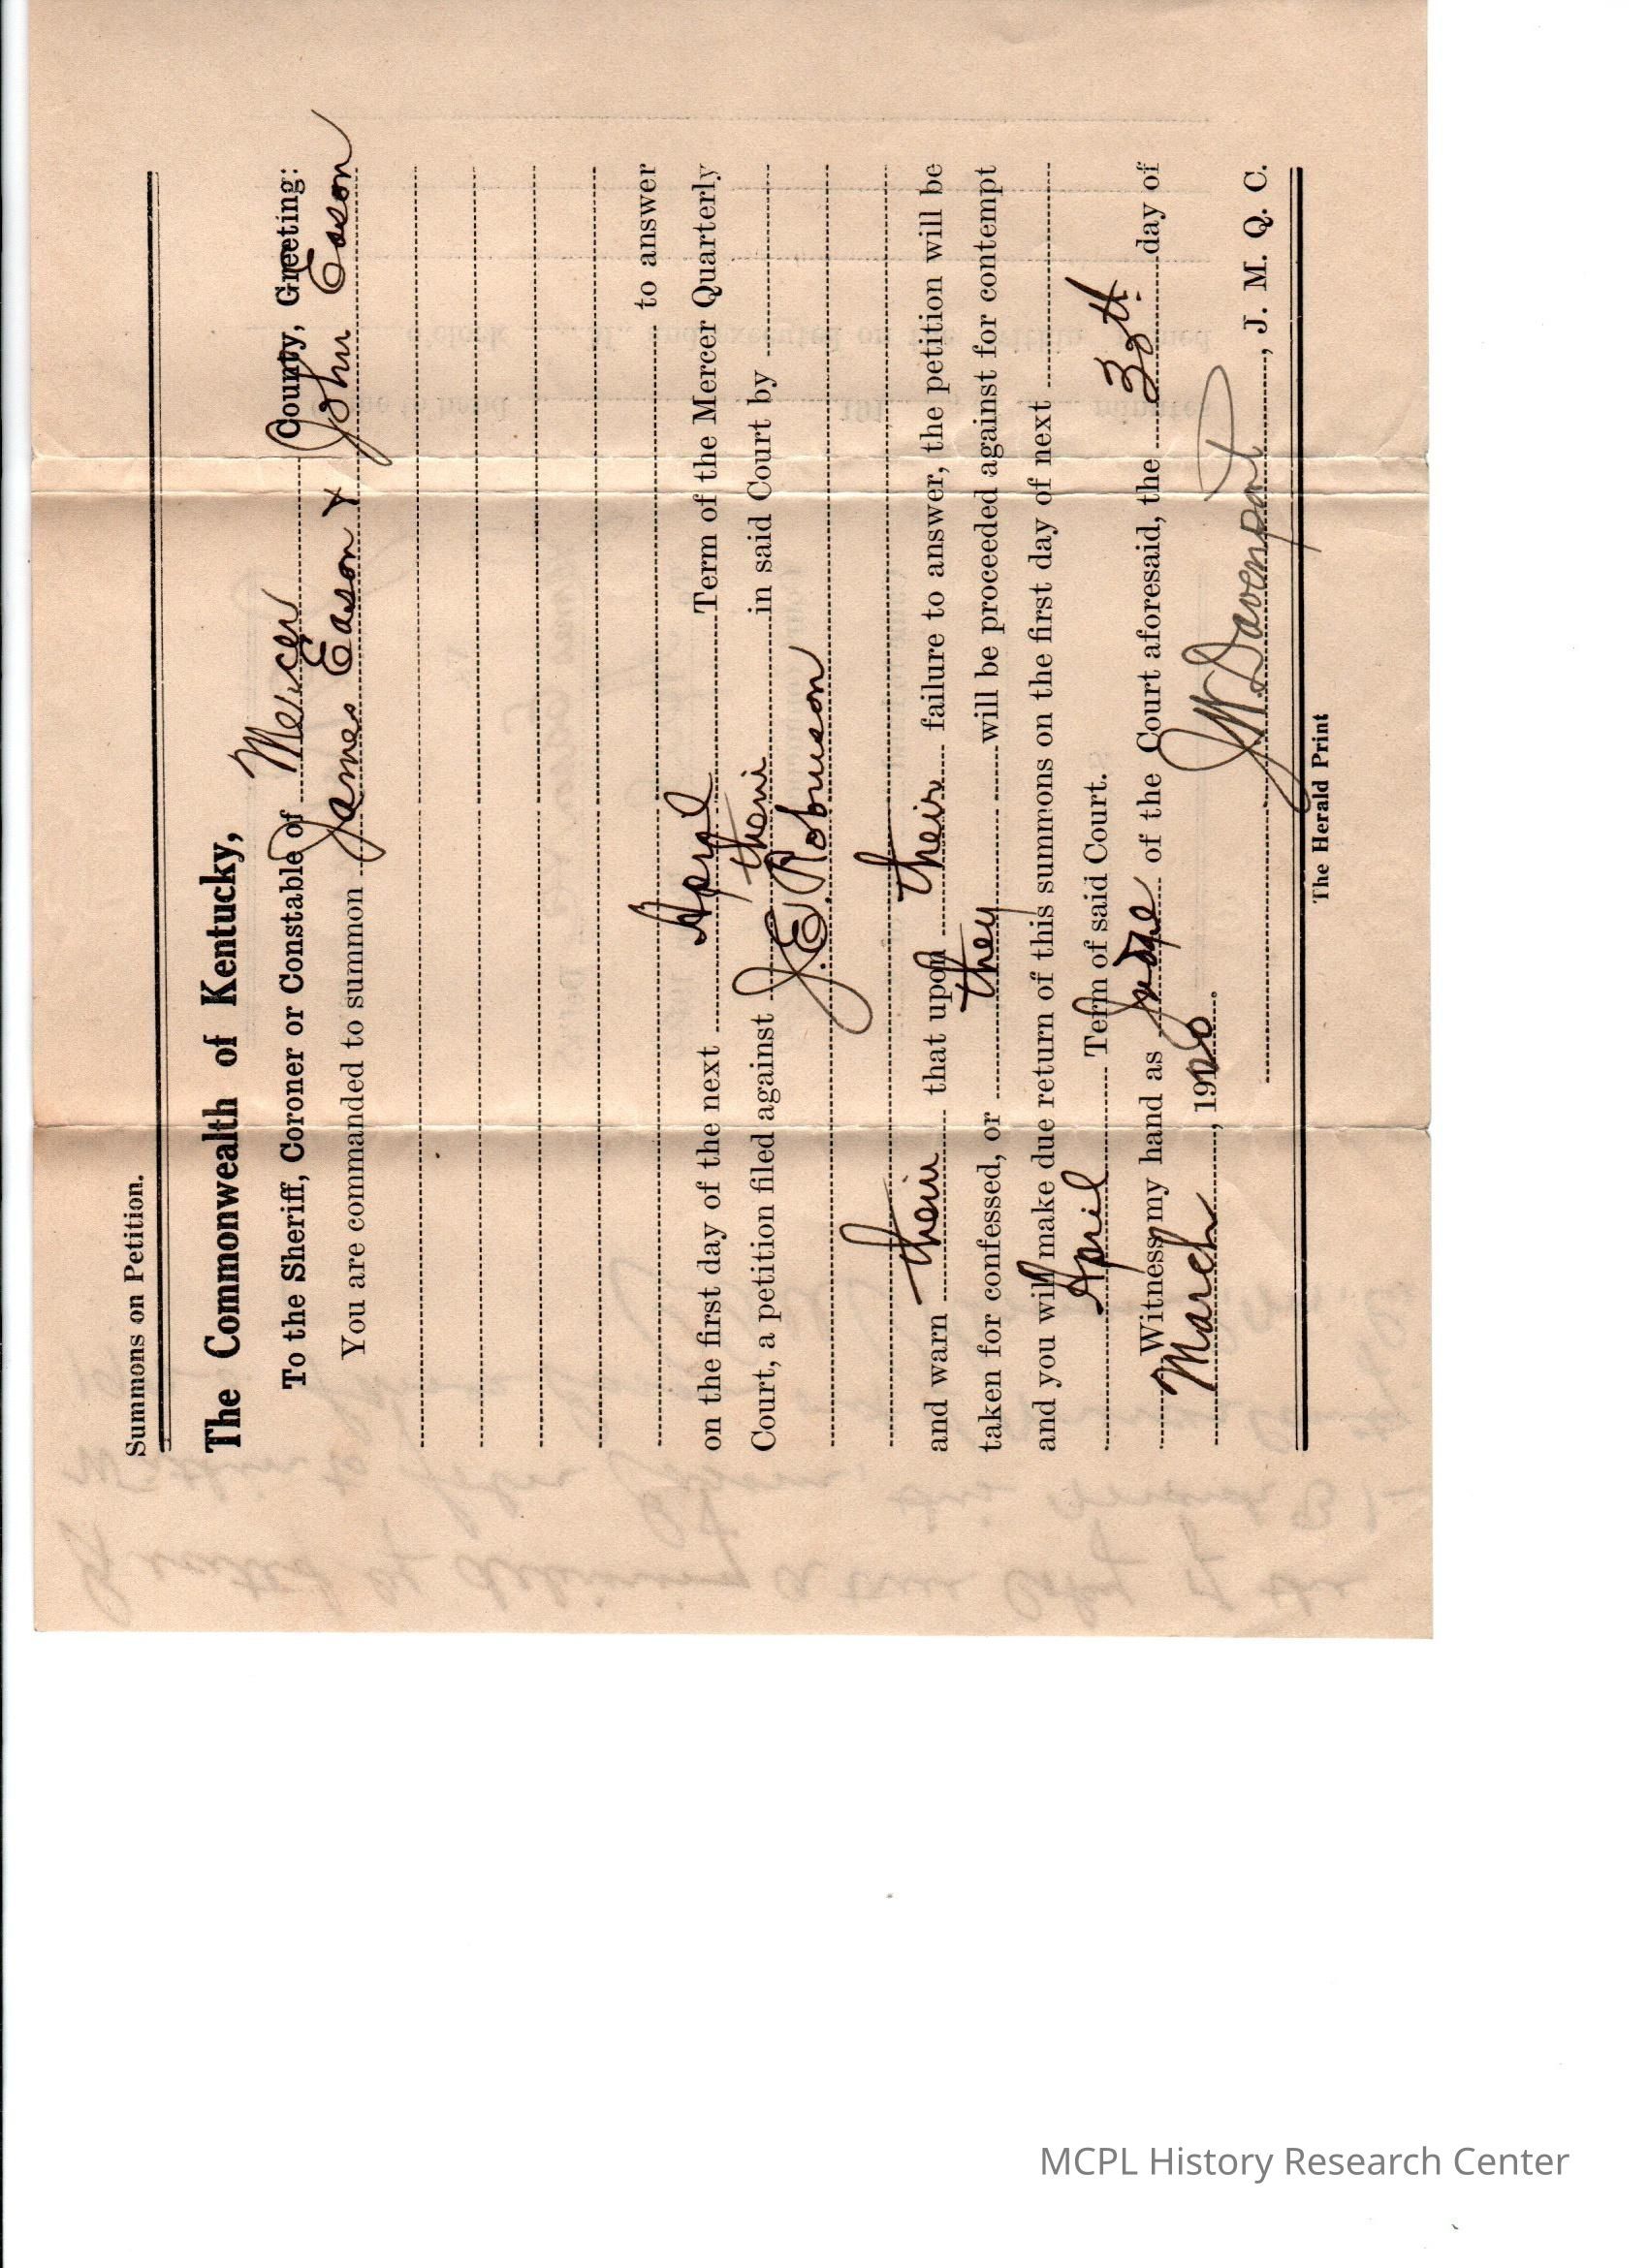 Summons on Petition.
The Commonwealth of Kentucky,
To the Sheriff, Coroner or Constable of Mercer County, Greeting:
You are commanded to summon James Eason & John Eason
to answer
on the first day of the next April Term of the Mercer Quarterly
Court, a petition filed against them in said Court by
J. E. Robinson
and warn them that upon their failure to answer, the petition will be
taken for confessed, or they will be proceeded against for contempt
and you will make due return of this summons on the first day of next
April Term of said Court.
Witness my hand as Judge of the Court aforesaid, the 30th day of
March, 1920.
J W Davenport, J. M. Q. C.
The Herald Print
MCPL History Research Center